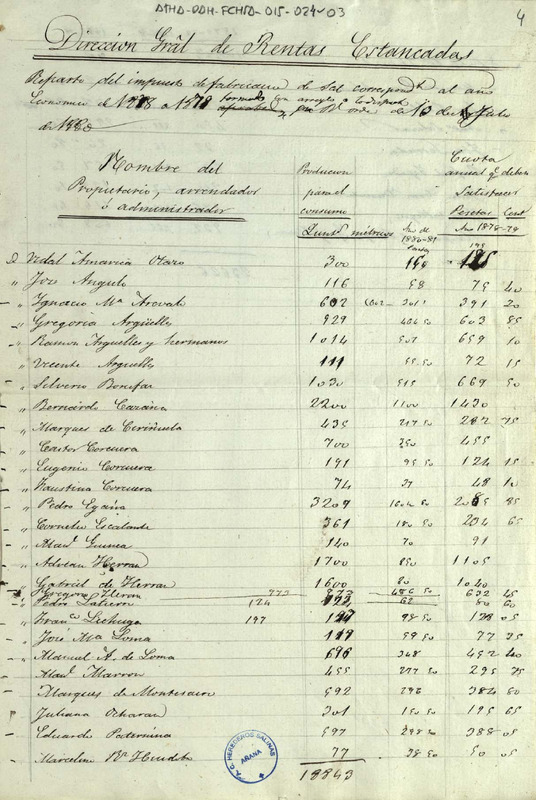 ATHA-DAH-FCHSA-015-024-03
4
Direccion Gral de Rentas Estancadas
Reparto del impuesto de fabricacion de sal correspond.te al año
Economico de 1878 a 1879 formado con arreglo a lo dispuesto R.l orden de 10 de Julio
de 1880
Nombre del
Propietario, arrendador
ó administrador
Produccion
para el
consumo
Quint.s metricos
Año de
1880-81
Cuota
annual q.e deben
Satisfacer
Pesetas Cent
Año 1878-79
D Vidal Amarica Otazo 300 195
" Jose Angulo 116 58 75 40
" Ignacio M.a Arevalo 602 602 301 391 30
" Gregorio Argüelles 929 464 50 603 85
" Ramon Arguelles y hermanos 1014 507 659 10
" Vicente Arguelles 111 55 50 72 15
" Silverio Bonifaz 1030 515 669 50
" Bernardo Cazaña 2200 1100 1430
" Marques de Ceriñuela 435 217 50 282 75
" Castor Corcuera 700 350 455
" Eugenio Corcuera 191 95 50 124 15
" Faustina Corcuera 74 37 48 10
" Pedro Egaña 3209 1604 50 2085 85
" Cornelio Escalante 361 180 50 234 65
" Guinea 140 70 91
" Adrian Herran 1700 850 1105
" Gabriel de Herran 1600 80 1040
" Gregoria Herran 973 973 486 50 632 45
" Pedro Latierro 124 62 80 60
" Fran.co Lechuga 197 197 98 50 128 05
" Jose M.a Loma 119 59 50 77 35
" Manuel A. de Loma 696 348 452 40
" Marron 455 227 50 295 75
" Marques de Montesacro 592 296 384 80
" Juliana Ocharan 301 150 50 195 65
" Eduardo Paternina 597 298 50 388 05
" Marcelino 77 38 50 50 05
18843
A.C. HEREDEROS SALINAS
AÑANA